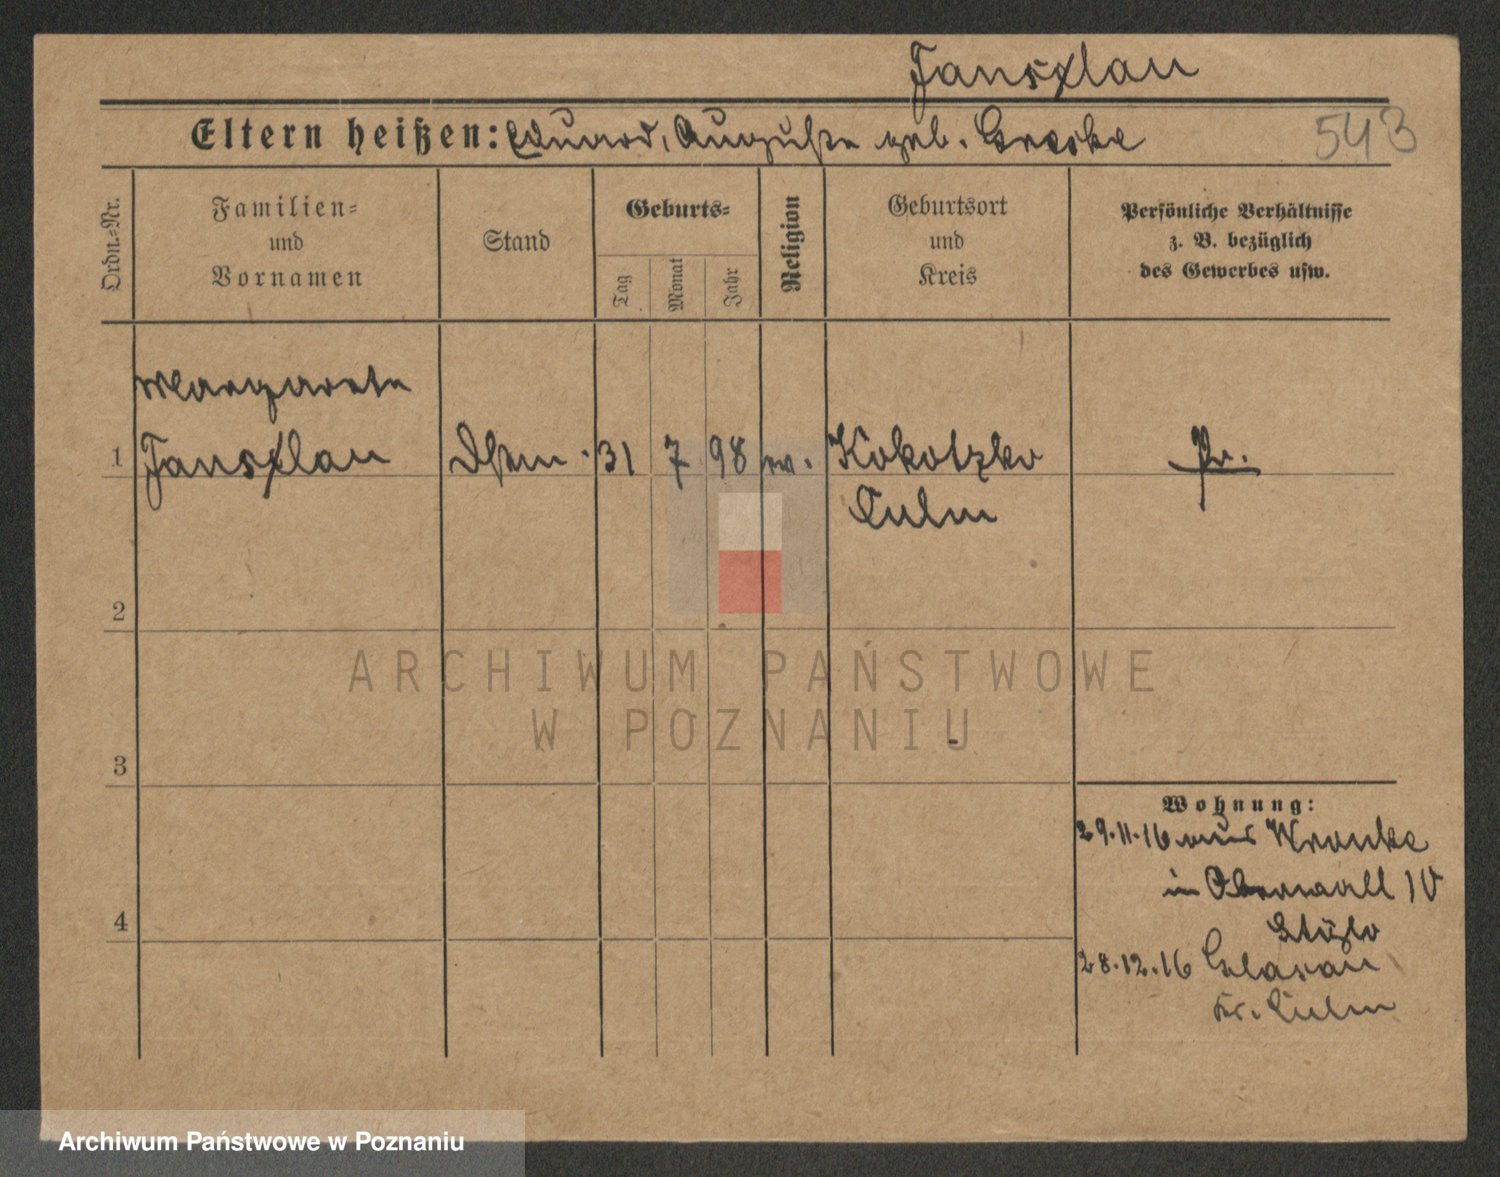 Jansxlau
543
Eltern heißen: Eduard, Auguste geb. Greske
Ordn.=Nr.
Familien=
und
Vornamen
Stand
Geburts=
Tag
Monat
Jahr
Religion
Geburtsort
und
Kreis
Persönliche Verhältnisse
z. B. bezüglich
des Gewerbes usw.
Margarete
1 31 7 98 ev. Kokotzko Pr.
Culm
2
3
4
Wohnung:
29.11.16 aus Wronke
in Oberwall 10
28.12.16
Kr. Culm
ARCHIWUM PAŃSTWOWE
W POZNANIU
Archiwum Państwowe w Poznaniu